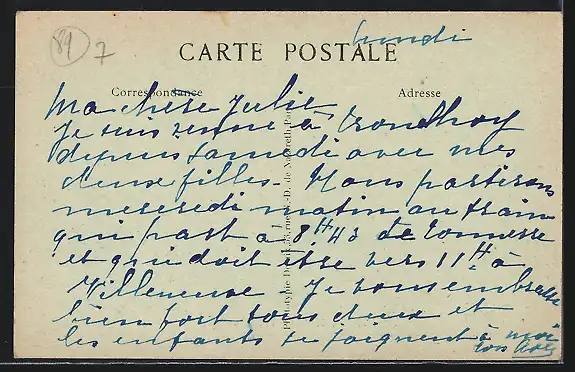 89
7
lundi
CARTE POSTALE
Correspondance
Adresse
Ma chère Julie,
Je suis venue à Tronchoy
depuis samedi avec mes
deux filles. Nous partirons
mercredi matin au train
qui part à 8H43 de Tonnerre
et qui doit être vers 11H à
Villeneuve. Je vous embrasse
bien fort tous deux et
les enfants se joignent à moi